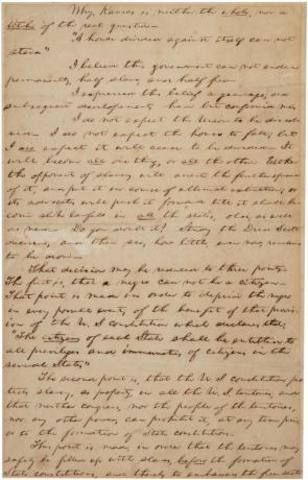 Why, Kansas is neither the whole, nor a
tithe of the real question.
"A house divided against itself can not
stand"
I believe this government can not endure
permanently, half slave, and half free.
I expressed this belief a year ago; and
subsequent developments have but confirmed me.
I do not expect the Union to be dissolved.
I do not expect the house to fall; but
I do expect it will cease to be divided. It
will become all one thing, or all the other. Either
the opponents of slavery will arrest the further spread
of it, and put it in course of ultimate extinction; or
its advocates will push it forward till it shall be-
come alike lawful in all the states, old, as well
as new. Do you doubt it? Study the Dred Scott
decision, and then see, how little, even now, remains
to be done.
That decision may be reduced to three points.
The first is, that a negro can not be a citizen.
That point is made in order to deprive the negro
in every possible event, of the benefit of that provis-
ion of the U. S constitution which declares that:
"The citizens of each State shall be entitled to
all privileges and immunities of citizens in the
several States."
The second point is, that the U. S constitution pro-
tects slavery, as property, in all the U. S. territories, and
that neither congress, nor the people of the territories,
nor any other power, can prohibit it, at any time prior
to the formation of State constitutions.
This point is made, in order that the territories may
safely be filled up with slaves, before the formation of
State constitutions, and thereby to embarrass the free state